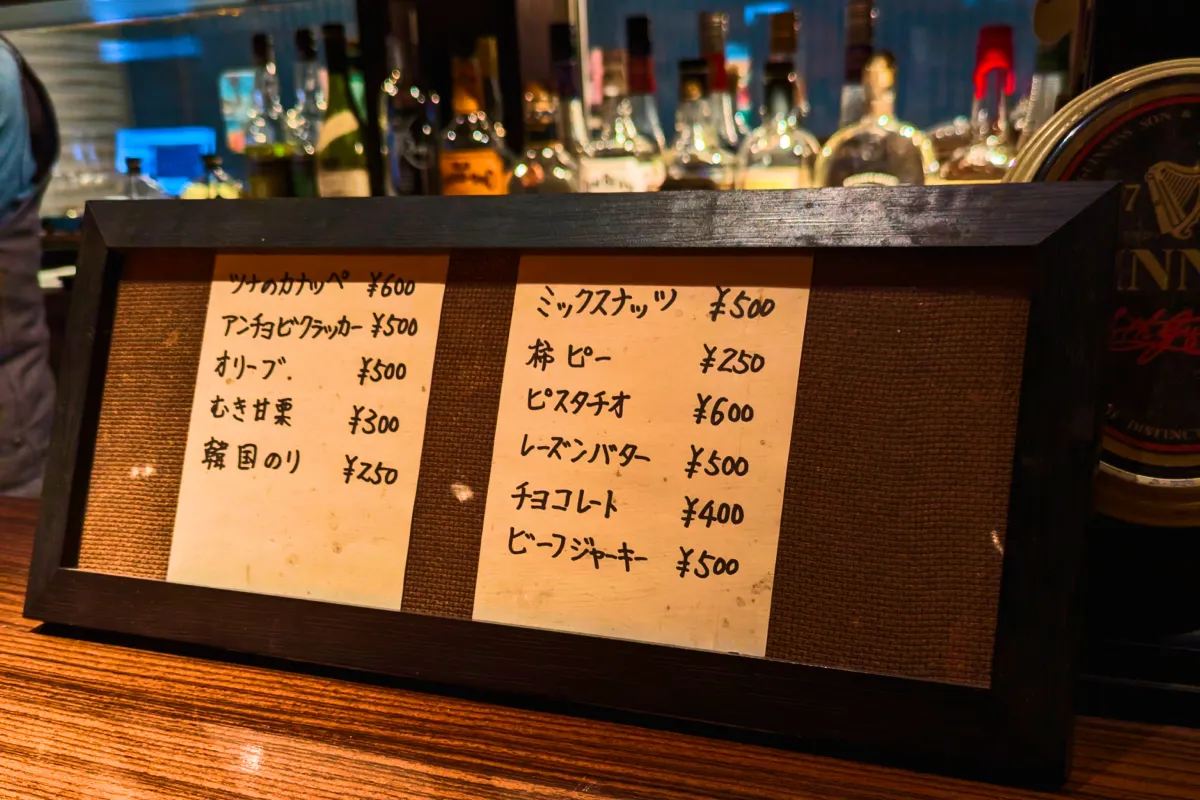 ツナのカナッペ ¥600
アンチョビクラッカー ¥500
オリーブ. ¥500
むき甘栗 ¥300
韓国のり ¥250
ミックスナッツ ¥500
柿ピー ¥250
ピスタチオ ¥600
レーズンバター ¥500
チョコレート ¥400
ビーフジャーキー ¥500